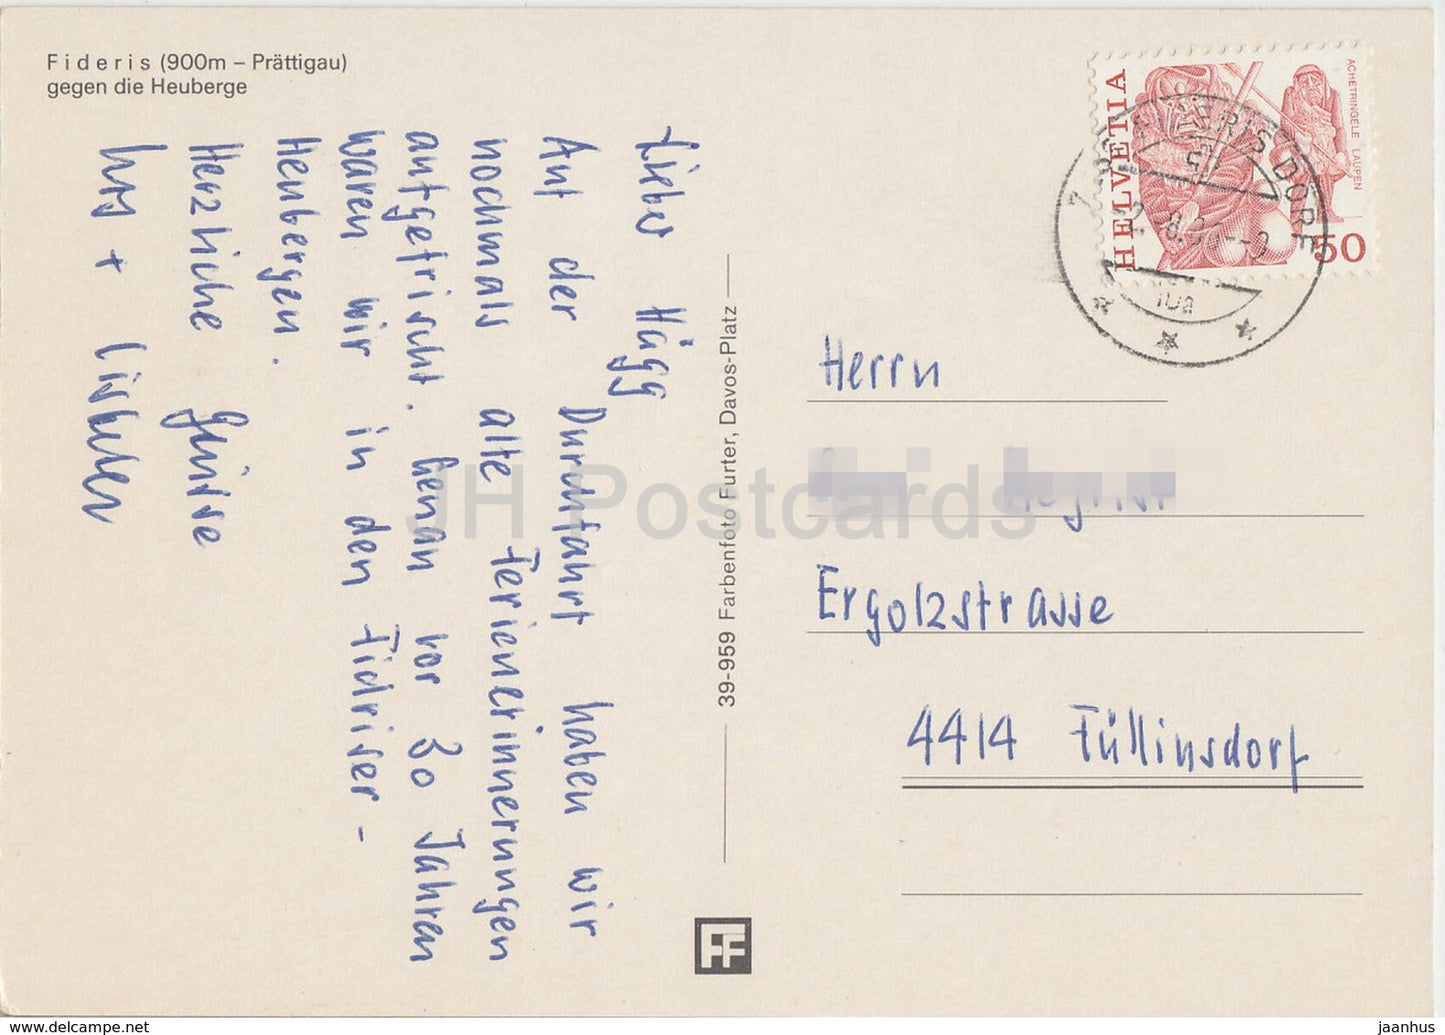 Fideris (900m – Prättigau)
gegen die Heuberge
Lieber Hägg
Auf der Durchfahrt haben wir
nochmals alte Ferienerinnerungen
aufgefrischt. Genau vor 30 Jahren
waren wir in den Fidriser -
Heubergen.
Herzliche Grüsse
+
39-959 Farbenfoto Furter, Davos-Platz
FF
HELVETIA
ACHETRINGELE LAUPEN
50
FIDERIS DORF
Herrn
Ergolzstrasse
4414 Füllinsdorf
JH Postcards
www.delcampe.net
jaanhus